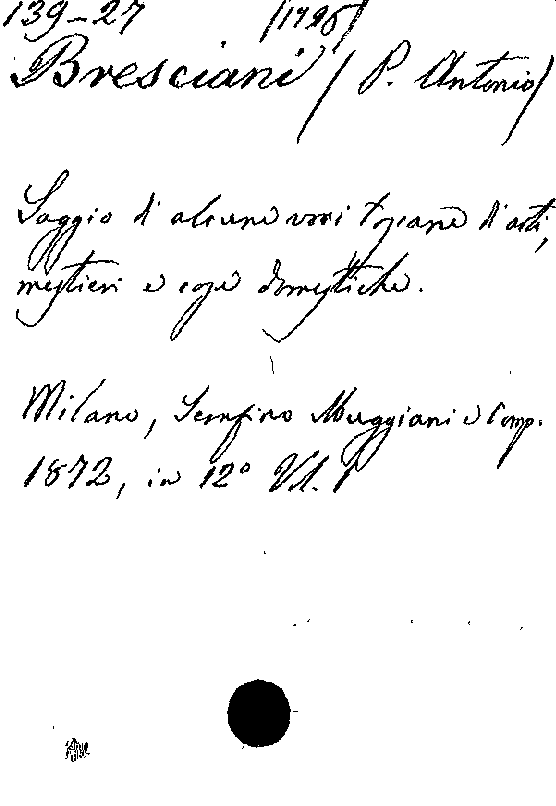 139-27 (1726)
Bresciani (P. Antonio)
Saggio di alcune voci toscane di arti,
mestieri e cose domestiche.
Milano, Serafino Muggiani e Comp.
1872, in 12° Vol. 1